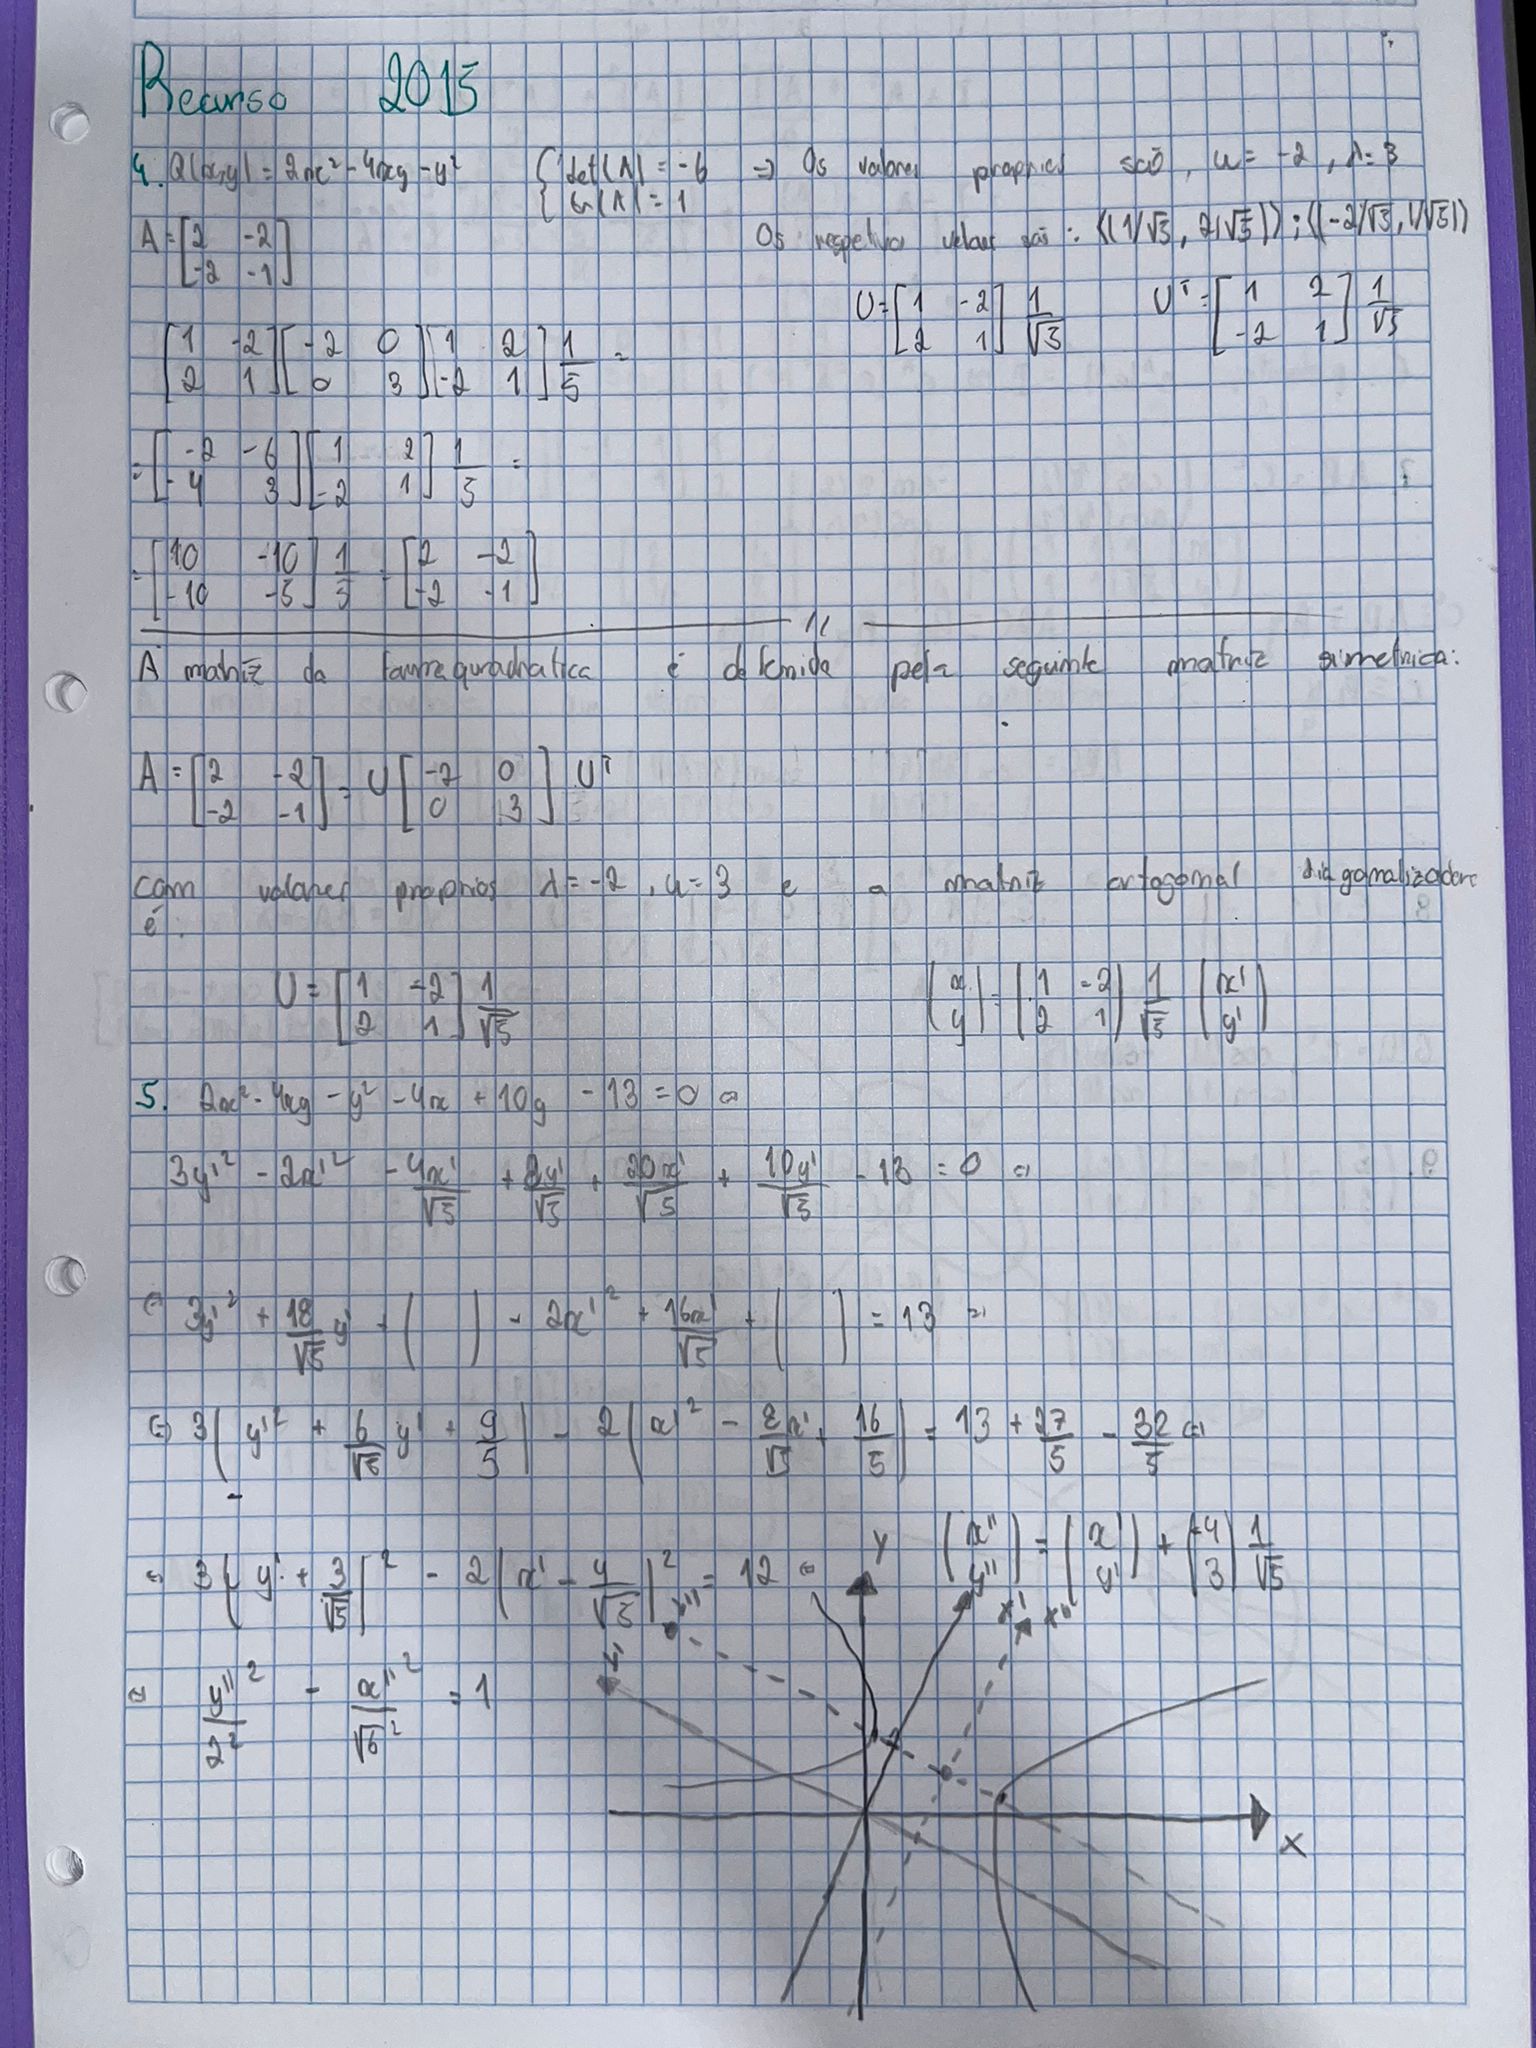 Recurso 2015
4. Q(x,y) = 2x² - 4xy - y² { det(A) = -6 => Os valores proprios são, u = -2, λ = 3
{ tr(A) = 1
A = [2 -2] Os respetivos vetores são: <(1/√5, 2/√5)>; <(-2/√5, 1/√5)>
[-2 -1]
U = [1 -2] 1/√5 Uᵀ = [1 2] 1/√5
[2 1] [-2 1]
[1 -2] [-2 0] [1 2] 1/5 =
[2 1] [0 3] [-2 1]
= [-2 -6] [1 2] 1/5 =
[-4 3] [-2 1]
= [10 -10] 1/5 = [2 -2]
[-10 -5] [-2 -1]
A matriz da forma quadratica é definida pela seguinte matriz simetrica:
A = [2 -2] = U [-2 0] Uᵀ
[-2 -1] [0 3]
com valores proprios λ = -2, u = 3 e a matriz ortogonal diagonalizadora
é:
U = [1 -2] 1/√5 (x) = (1 -2) 1/√5 (x')
[2 1] (y) (2 1) (y')
5. 2x² - 4xy - y² - 4x + 10y - 13 = 0 ⇔
3y'² - 2x'² - 4x'/√5 + 8y'/√5 + 20x'/√5 + 10y'/√5 - 13 = 0 ⇔
⇔ 3y'² + 18/√5 y' + ( ) - 2x'² + 16x'/√5 + ( ) = 13 ⇔
⇔ 3(y'² + 6/√5 y' + 9/5) - 2(x'² - 8/√5 x' + 16/5) = 13 + 27/5 - 32/5 ⇔
⇔ 3(y' + 3/√5)² - 2(x' - 4/√5)² = 12 ⇔
(x'') = (x') + (-4) 1/√5
(y'') (y') (3)
⇔ y''²/2² - x''²/√6² = 1
Y
x' x''
y''
y'
X